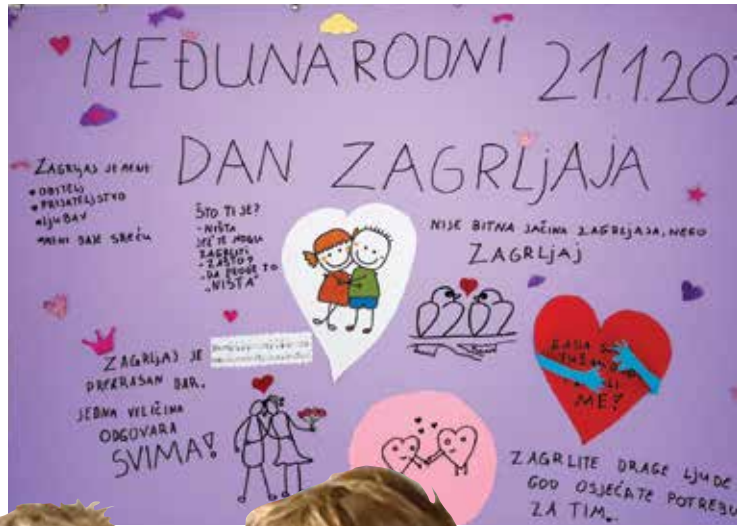 MEĐUNARODNI 21.1.202
DAN ZAGRLJAJA
ZAGRLJAJ JE MENI
• OBITELJ
• PRIJATELJSTVO
• LJUBAV
• MENI DAJE SREĆU
ŠTO TI JE?
- NIŠTA
JEL' TE MOGU
ZAGRLITI
- ZAŠTO?
- DA PROĐE TO
"NIŠTA"
NIJE BITNA JAČINA ZAGRLJAJA, NEGO
ZAGRLJAJ
ZAGRLJAJ JE
PREKRASAN DAR.
JEDNA VELIČINA
ODGOVARA
SVIMA!
ME?
ZAGRLITE DRAGE LJUDE
GOD OSJEĆATE POTREBU
ZA TIM..